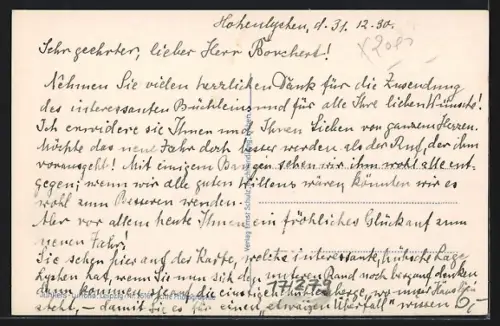 Hohenlychen, d. 31. 12. 30.
Sehr geehrter, lieber Herr Borchert!
Nehmen Sie vielen herzlichen Dank für die Zusendung
des interessanten Büchleins und für alle Ihre lieben Wünsche!
Ich erwidere sie Ihnen und Ihren Lieben von ganzem Herzen.
Möchte das neue Jahr doch besser werden als der Ruf, der ihm
vorausgeht! Mit einigem Bangen sehen wir ihm wohl alle ent-
gegen; wenn wir alle guten Willens wären, könnten wir es
wohl zum Besseren wenden.
Aber vor allem heute Ihnen ein fröhliches Glückauf zum
neuen Jahr!
Sie sehen hier auf der Karte, welche interessante, hübsche Lage
Lychen hat, wenn Sie nun sich den unteren Rand noch bergauf denken
dann kommen Sie auf die wo unser Haus
steht, – damit Sie es für einen „etwaigen Überfall" wissen
17279
6,-
Verlag Ernst